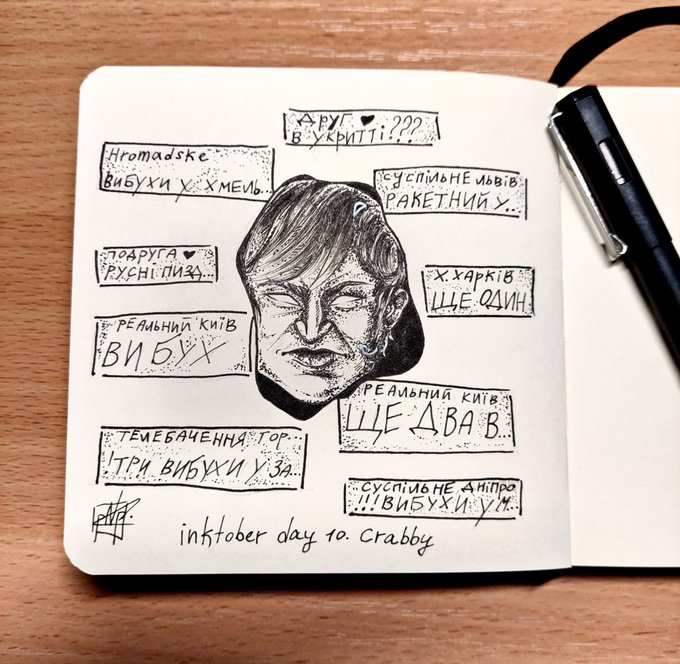 ДРУГ ♥
В УКРИТТІ???
Hromadske
ВИБУХИ У ХМЕЛЬ...
СУСПІЛЬНЕ ЛЬВІВ
РАКЕТНИЙ У...
ПОДРУГА ♥
РУСНІ ПИЗД...
Х.ХАРКІВ
ЩЕ ОДИН
РЕАЛЬНИЙ КИЇВ
ВИБУХ
РЕАЛЬНИЙ КИЇВ
ЩЕ ДВА В...
ТЕЛЕБАЧЕННЯ ТОР...
!ТРИ ВИБУХИ У ЗА...
СУСПІЛЬНЕ ДНІПРО
!!!ВИБУХИ У М...
inktober day 10. crabby